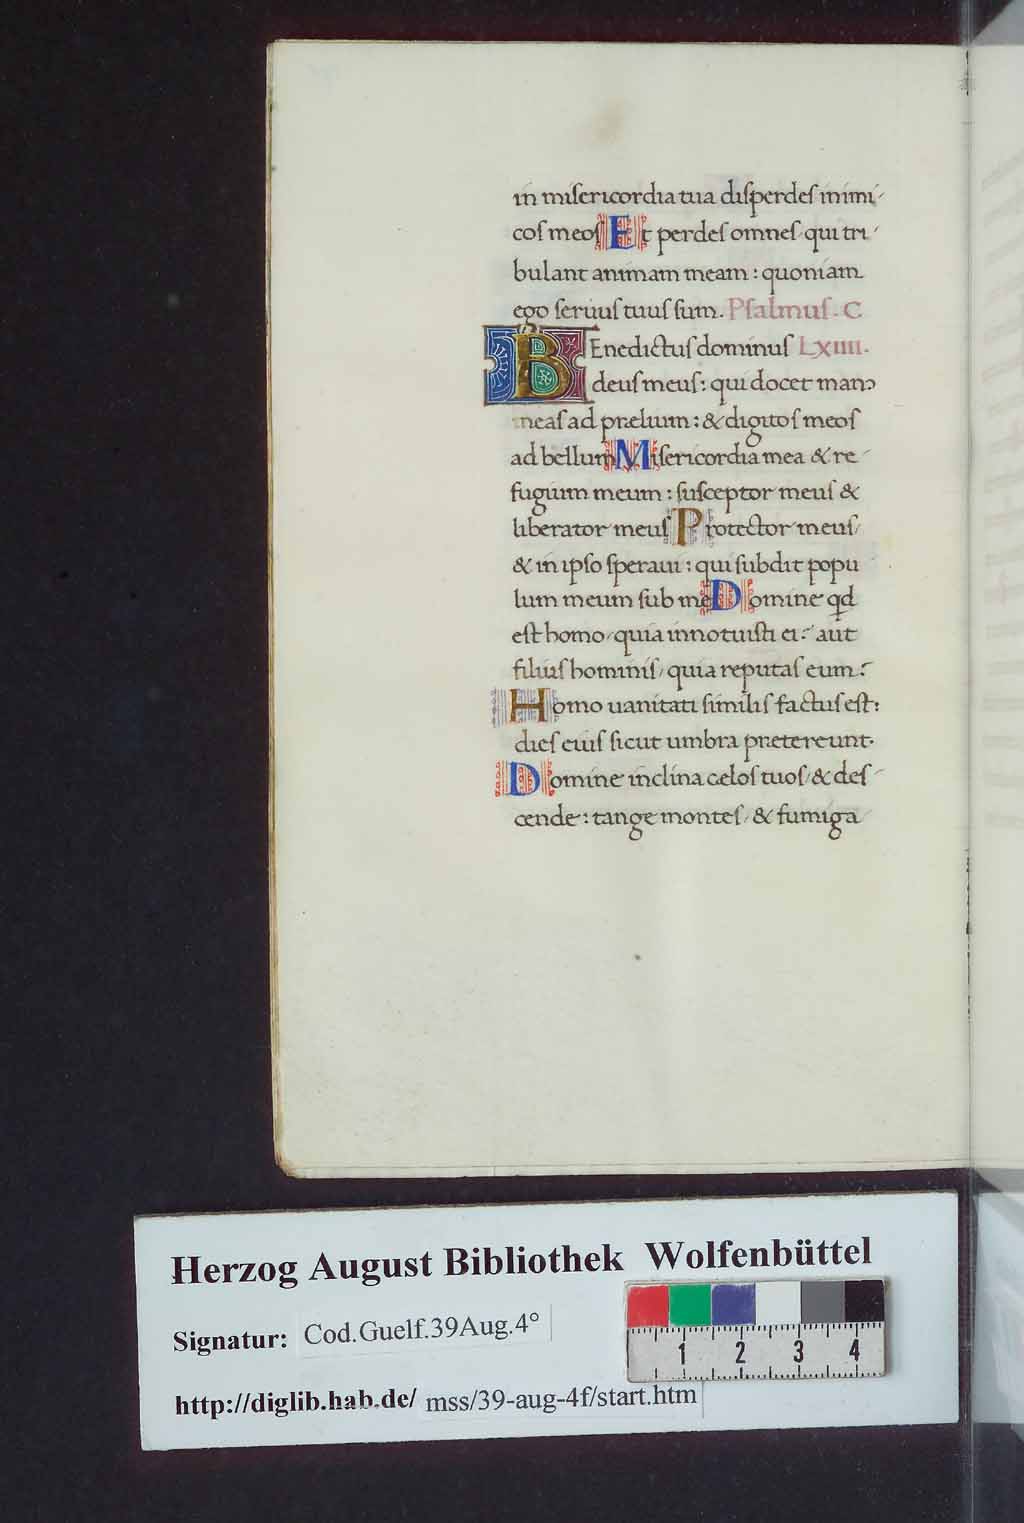 in miſericordia tua diſperdeſ inimi-
coſ meoſ Et perdeſ omneſ qui tri-
bulant animam meam : quoniam
ego ſeruuſ tuuſ ſum. Pſalmuſ. C
BEnedictuſ dominuſ LXIIII.
deuſ meuſ : qui docet manᵘ
meaſ ad prælium : & digitoſ meoſ
ad bellum Miſericordia mea & re-
fugium meum : ſuſceptor meuſ &
liberator meuſ Protector meuſ
& in ipſo ſperaui : qui ſubdit popu
lum meum ſub me Domine qd
eſt homo, quia innotuiſti ei? aut
filiuſ hominiſ, quia reputaſ eum?
Homo uanitati ſimiliſ factuſ eſt:
dieſ eiuſ ſicut umbra prætereunt.
Domine inclina cęloſ tuoſ, & deſ-
cende : tange monteſ, & fumiga
Herzog August Bibliothek Wolfenbüttel
Signatur: Cod.Guelf.39Aug.4°
1 2 3 4
http://diglib.hab.de/ mss/39-aug-4f/start.htm